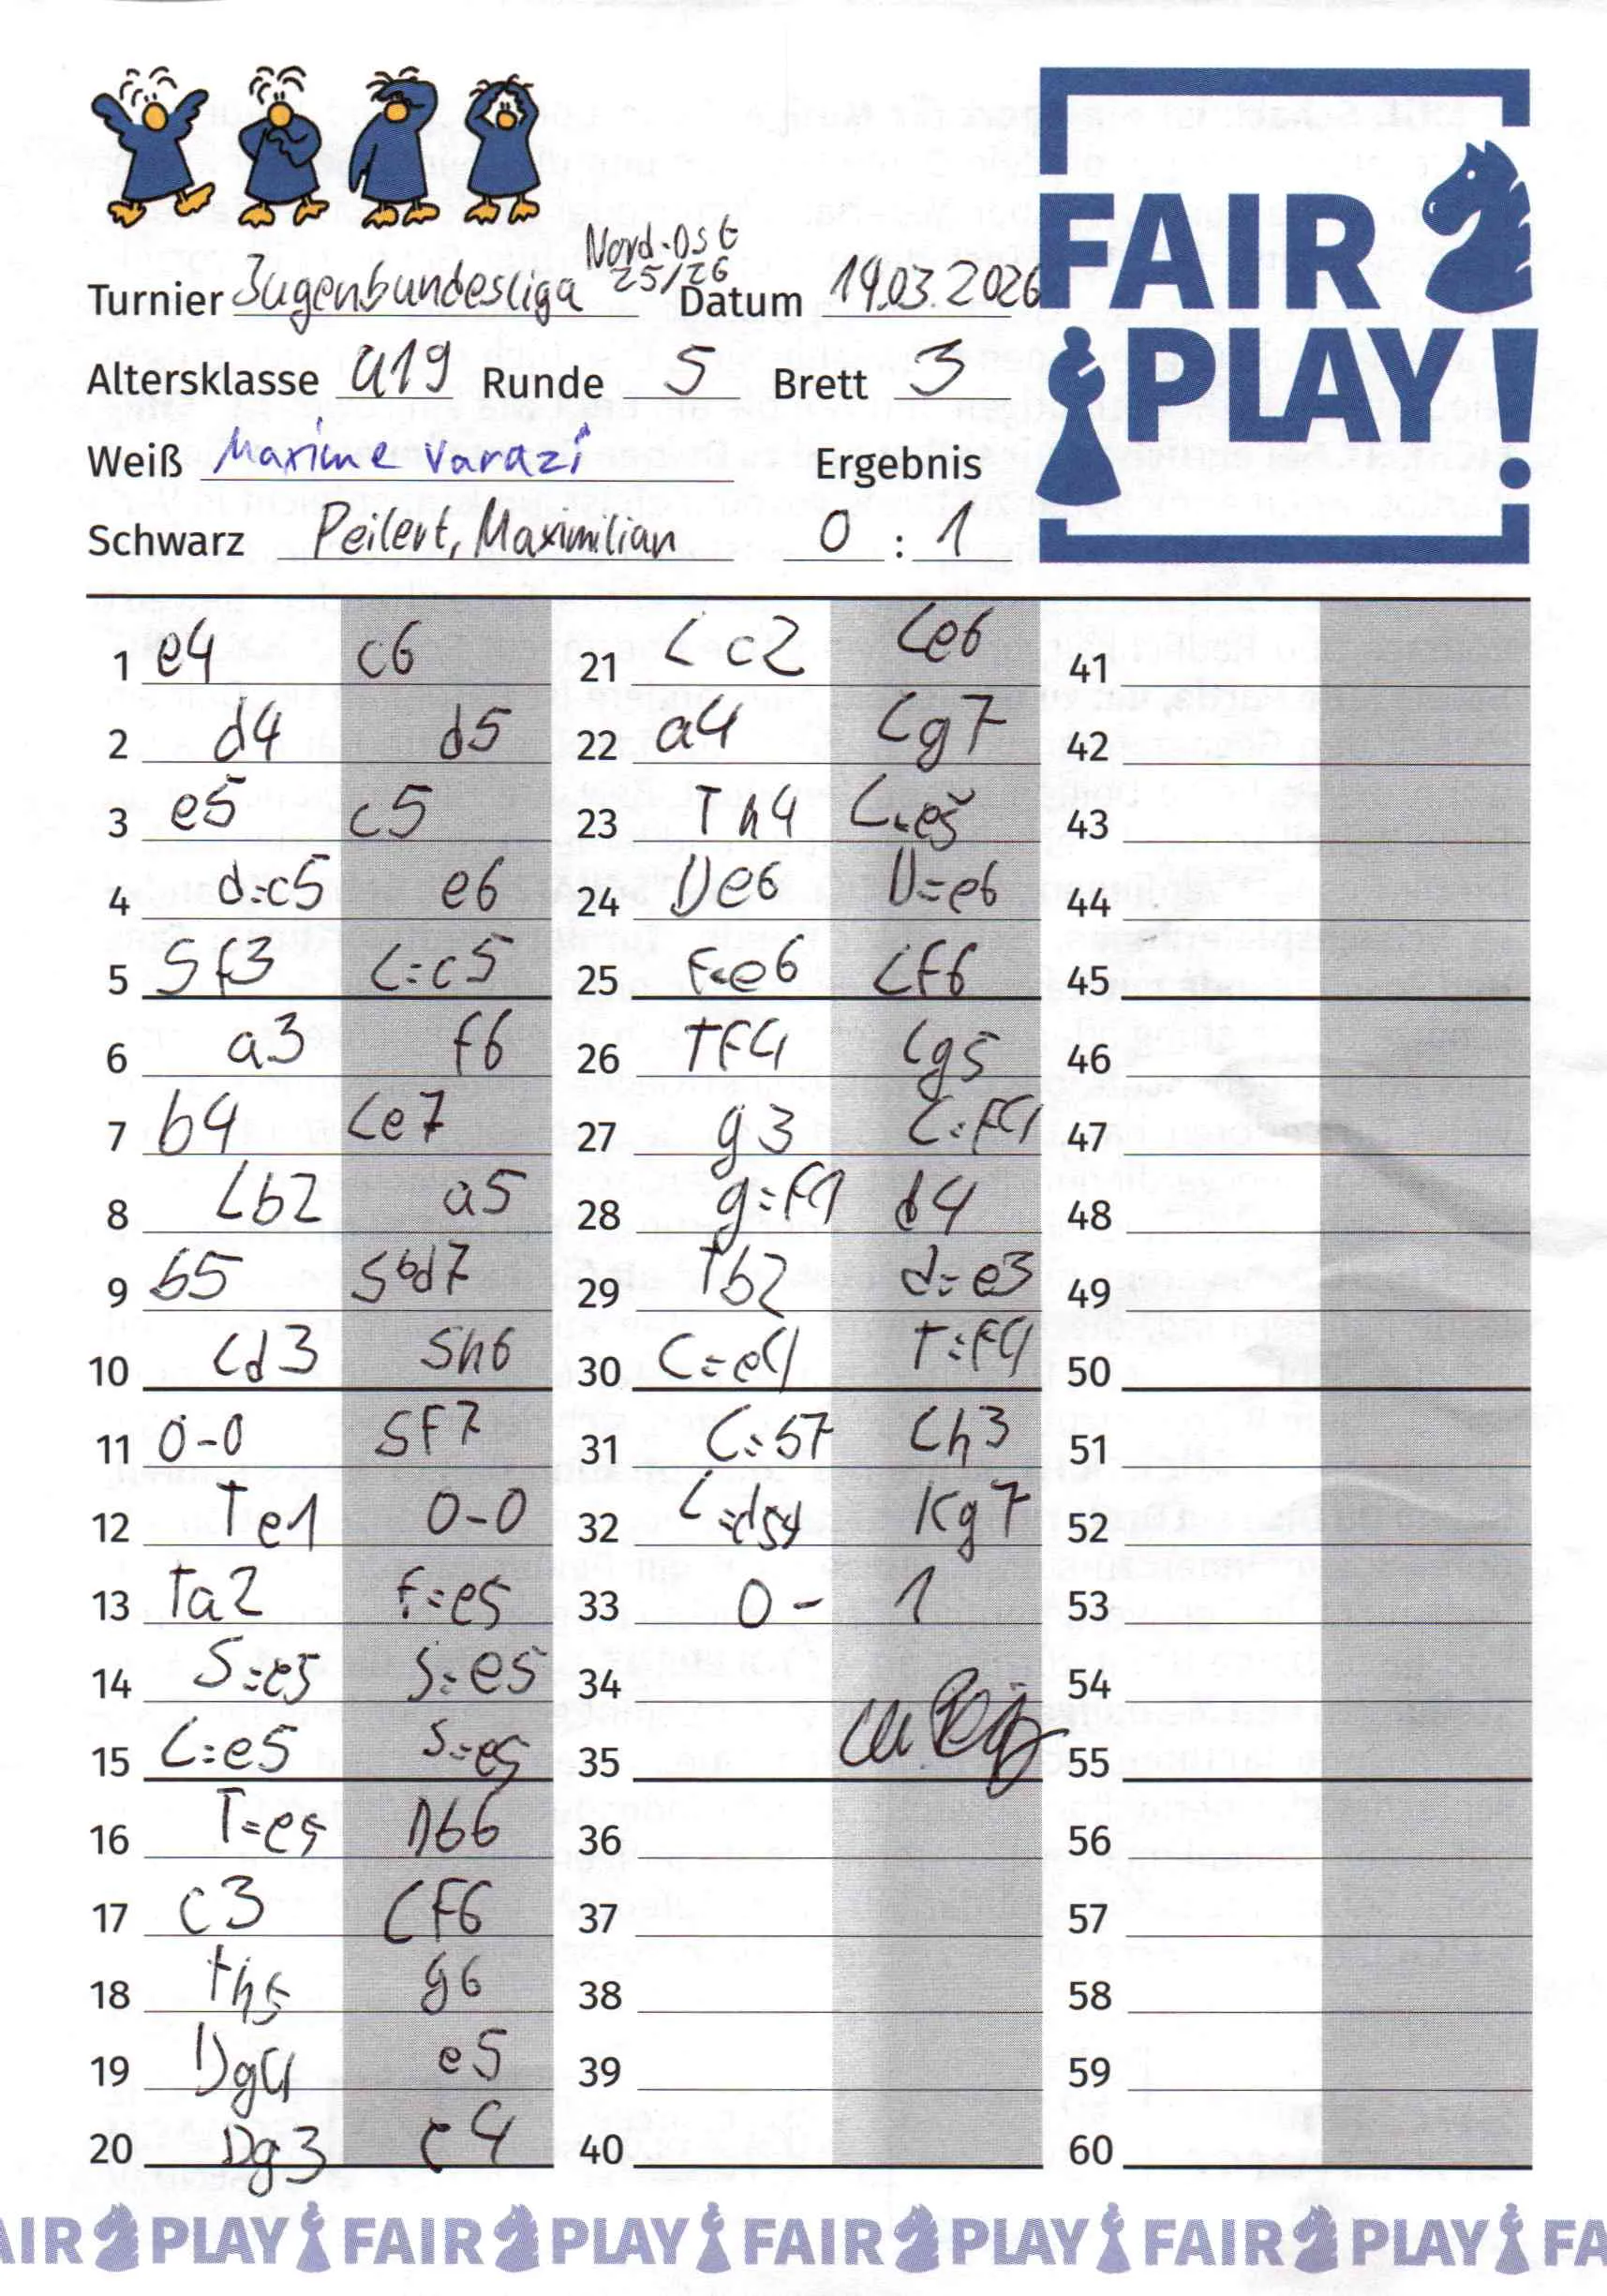 Nord-Ost
Turnier Jugenbundesliga 25/26 Datum 14.03.2026
Altersklasse U19 Runde 5 Brett 3
Weiß Maxime Varazi Ergebnis
Schwarz Peilert, Maximilian 0 : 1
FAIR
PLAY!
1 e4 c6
2 d4 d5
3 e5 c5
4 d=c5 e6
5 Sf3 L=c5
6 a3 f6
7 b4 Le7
8 Lb2 a5
9 b5 Sbd7
10 Ld3 Sh6
11 0-0 Sf7
12 Te1 0-0
13 Ta2 f=e5
14 S=e5 S=e5
15 L=e5 S=e5
16 T=e5 Db6
17 c3 Lf6
18 Th5 g6
19 Dg4 e5
20 Dg3 e4
21 Lc2 Le6
22 a4 Lg7
23 Th4 L=e5
24 De6 D=e6
25 f=e6 Lf6
26 Tf4 Lg5
27 g3 L=f4
28 g=f4 d4
29 Tb2 d=e3
30 L=e4 T=f4
31 L=b7 Lh3
32 L=d5+ Kg7
33 0 - 1
34
35
36
37
38
39
40
41
42
43
44
45
46
47
48
49
50
51
52
53
54
55
56
57
58
59
60
AIR PLAY FAIR PLAY FAIR PLAY FAIR PLAY FA